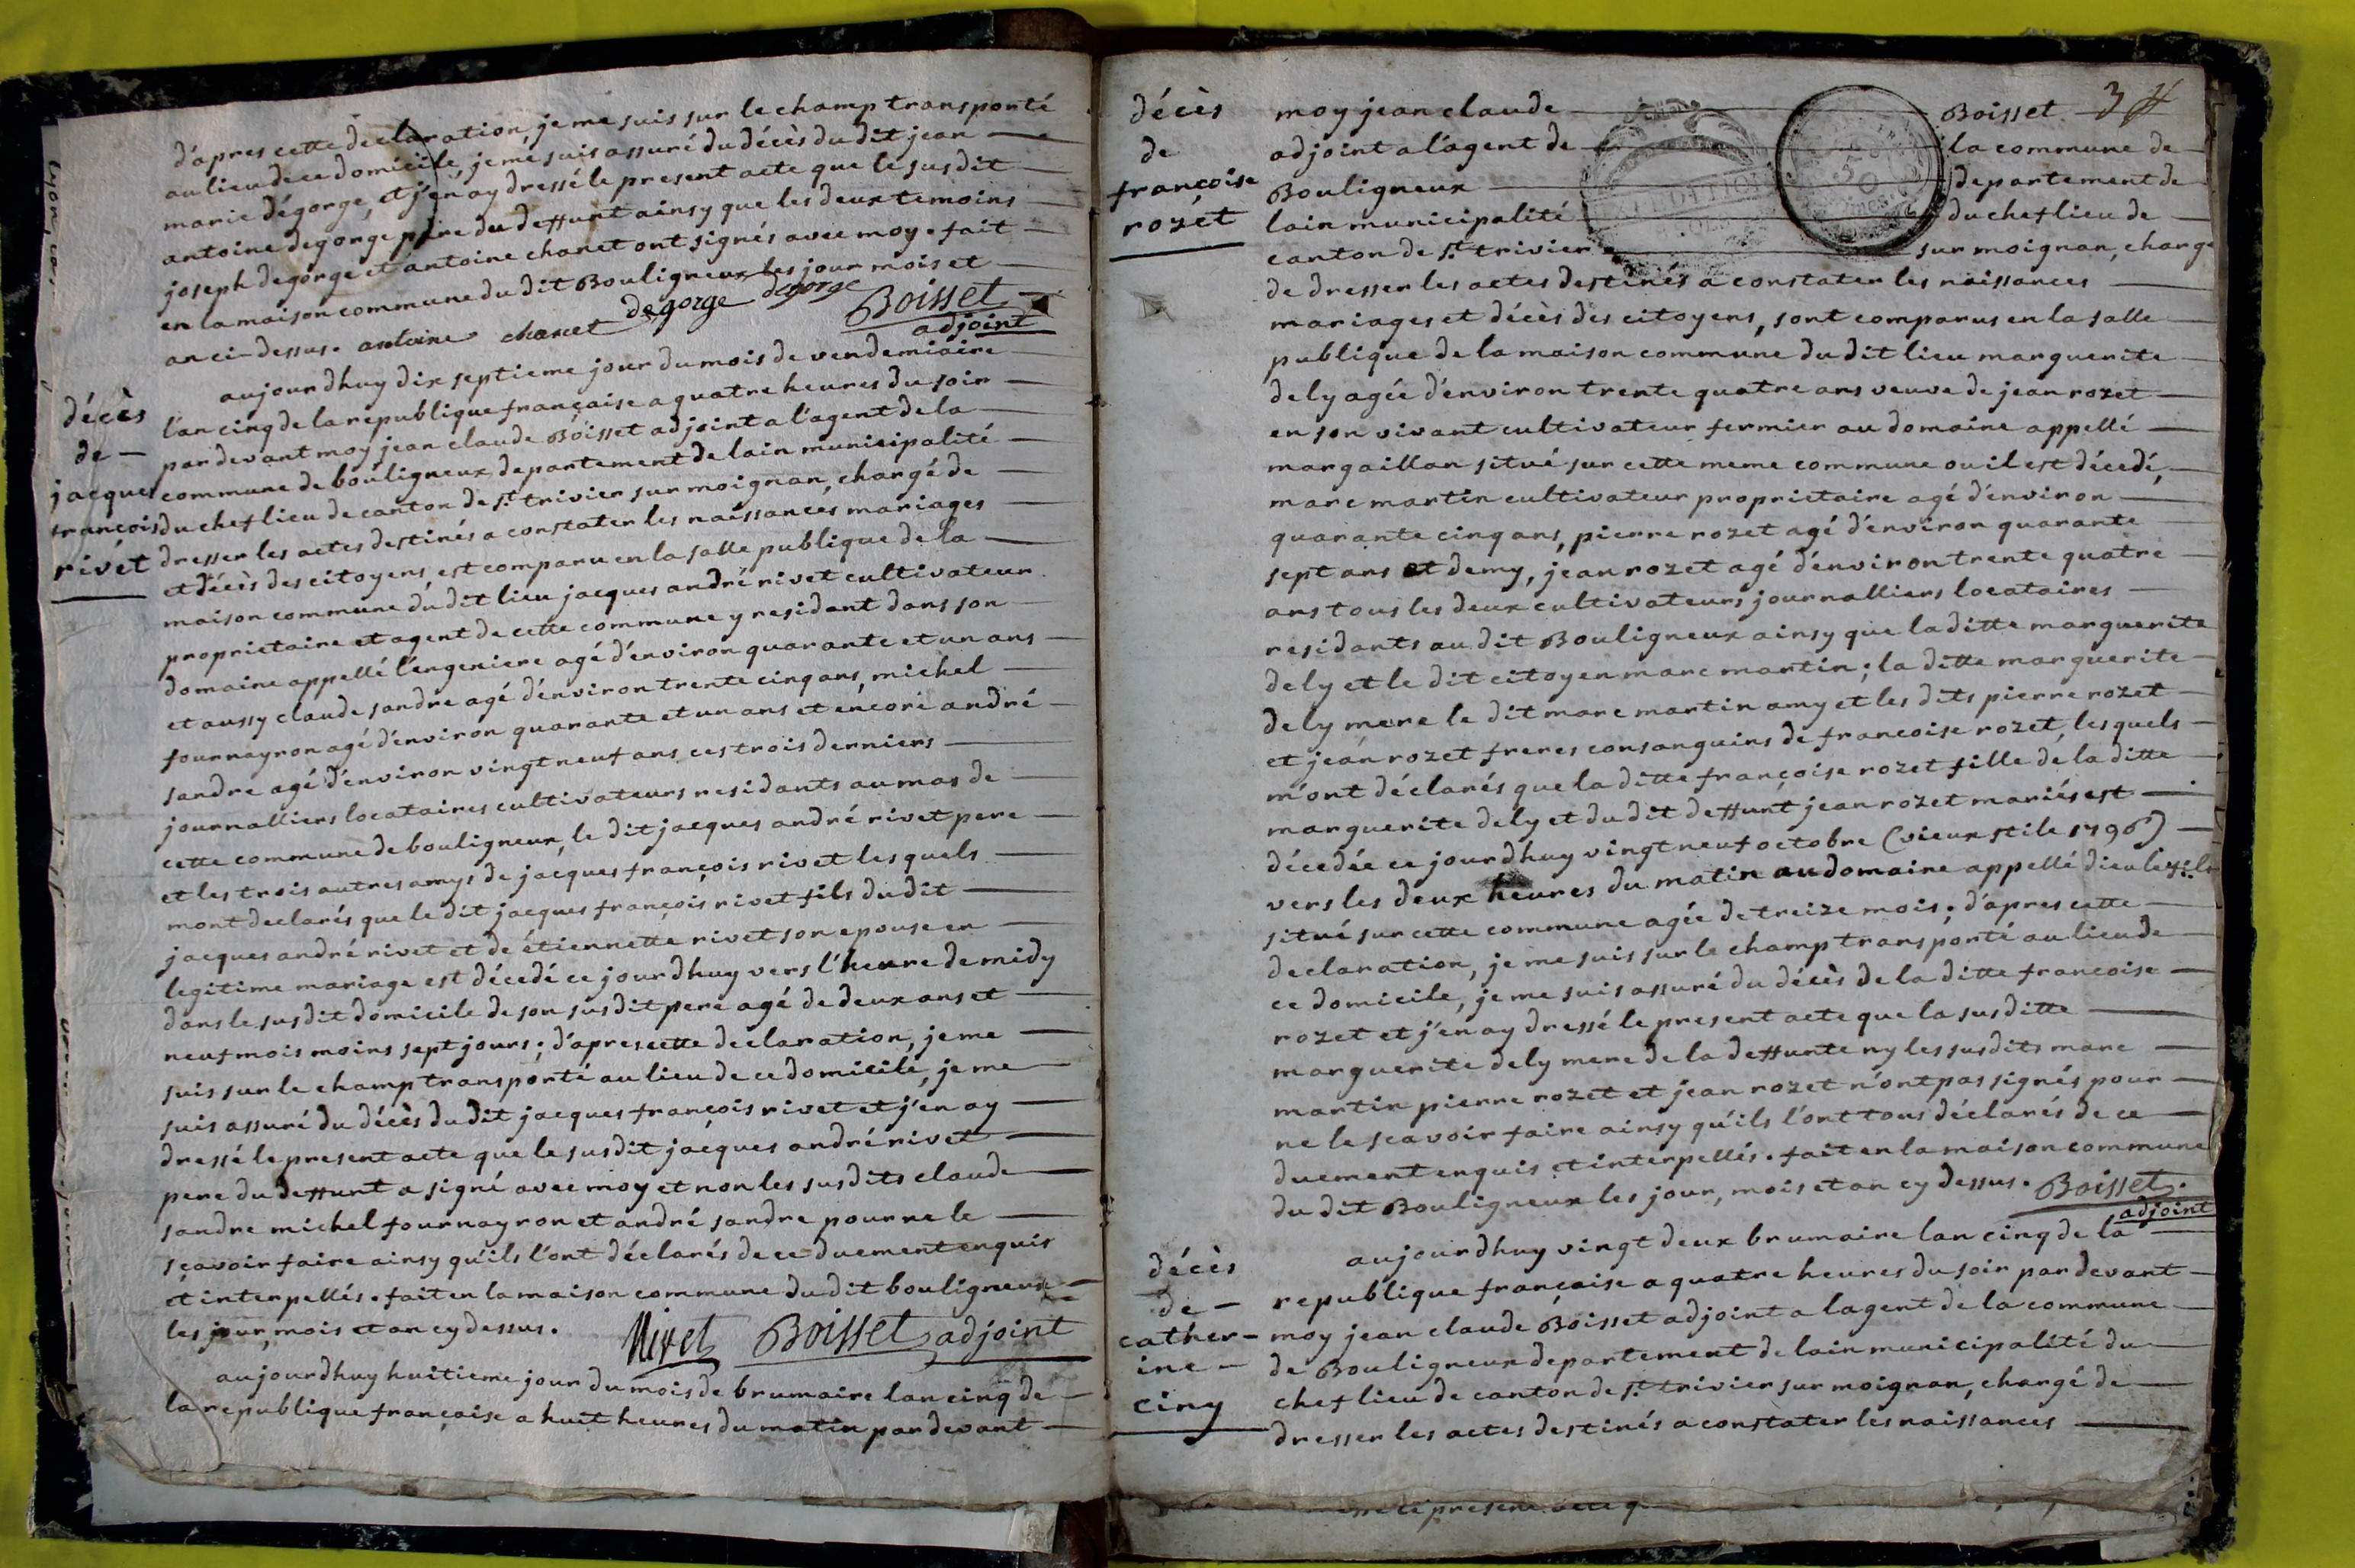 d'apres cette declaration, je me suis sur le champ transporté
au lieu de ce domicile, je me suis assuré du décès du dit jean
marie dégorge, et j'en ay dressé le present acte que le susdit
antoine degorge père du deffunt ainsy que les deux temoins
joseph degorge et antoine chanet ont signés avec moy. fait
en la maison commune du dit Bouligneux les jour mois et
an ci-dessus. antoine chanet degorge degorge Boisset
adjoint
décès
de
jacques
françois
rivét
aujourdhuy dix septieme jour du mois de vendemiaire
l'an cinq de la republique française a quatre heures du soir
par devant moy jean claude Boisset adjoint a l'agent de la
commune de bouligneux departement de lain municipalité
du chef lieu de canton de st. trivier sur moignan, chargé de
dresser les actes destinés a constater les naissances mariages
et décès des citoyens, est comparu en la salle publique de la
maison commune du dit lieu jacques andré rivet cultivateur
proprietaire et agent de cette commune y residant dans son
domaine appellé l'engeniere agé d'environ quarante et un ans
et aussy claude sandre agé d'environ trente cinq ans, michel
fournayron agé d'environ quarante et un ans et encore andré
sandre agé d'environ vingt neuf ans, ces trois derniers
journalliers locataires cultivateurs residants au mas de
cette commune de bouligneux, le dit jacques andré rivet pere
et les trois autres amys de jacques françois rivet les quels
mont declarés que le dit jacques françois rivet fils du dit
jacques andré rivet et de étiennette rivet son epouse en
legitime mariage est décedé ce jourdhuy vers l'heure de midy
dans le susdit domicile de son susdit pere agé de deux ans et
neuf mois moins sept jours; d'apres cette declaration, je me
suis sur le champ transporté au lieu de ce domicile, je me
suis assuré du décès du dit jacques françois rivet et j'en ay
dressé le present acte que le susdit jacques andré rivet
pere du deffunt a signé avec moy et non les susdits claude
sandre michel fournayron et andré sandre pour ne le
sçavoir faire ainsy qu'ils l'ont déclarés de ce duement enquis
et interpellés. fait en la maison commune du dit bouligneux
les jour, mois et an cy dessus. Rivet Boisset adjoint
aujourdhuy huitieme jour du mois de brumaire lan cinq de
la republique française a huit heures du matin par devant
décès
de
françoise
rozét
moy jean claude Boisset 3
adjoint a l'agent de la commune de
Bouligneux departement de
lain municipalité du chef lieu de
canton de st. trivier sur moignan, chargé
de dresser les actes destinés a constater les naissances
mariages et décès des citoyens, sont comparus en la salle
publique de la maison commune du dit lieu marguerite
dely agée d'environ trente quatre ans veuve de jean rozet
en son vivant cultivateur fermier au domaine appellé
margaillan situé sur cette meme commune ou il est décedé,
marc martin cultivateur proprietaire agé d'environ
quarante cinq ans, pierre rozet agé d'environ quarante
sept ans et demy, jean rozet agé d'environ trente quatre
ans tous les deux cultivateurs journalliers locataires
residants au dit Bouligneux ainsy que la ditte marguerite
dely et le dit citoyen marc martin; la ditte marguerite
dely mere le dit marc martin amy et les dits pierre rozet
et jean rozet freres consanguins de francoise rozet, les quels
m'ont déclarés que la ditte françoise rozet fille de la ditte
marguerite dely et du dit deffunt jean rozet mariés est
décedée ce jourdhuy vingt neuf octobre (vieux stile 1796)
vers les deux heures du matin au domaine appellé
situé sur cette commune agée de treize mois; d'apres cette
declaration, je me suis sur le champ transporté au lieu de
ce domicile, je me suis assuré du décès de la ditte francoise
rozet et j'en ay dressé le present acte que la susditte
marguerite dely mere de la deffunte ny les susdits marc
martin pierre rozet et jean rozet n'ont pas signés pour
ne le scavoir faire ainsy qu'ils l'ont tous déclarés de ce
duement enquis et interpellés. fait en la maison commune
du dit Bouligneux les jour, mois et an cy dessus. Boisset.
adjoint
décès
de
cather-
ine
ciny
aujourdhuy vingt deux brumaire lan cinq de la
republique française a quatre heures du soir par devant
moy jean claude Boisset adjoint a lagent de la commune
de Bouligneux departement de lain municipalité du
chef lieu de canton de st. trivier sur moignan, chargé de
dresser les actes destinés a constater les naissances
le present acte q